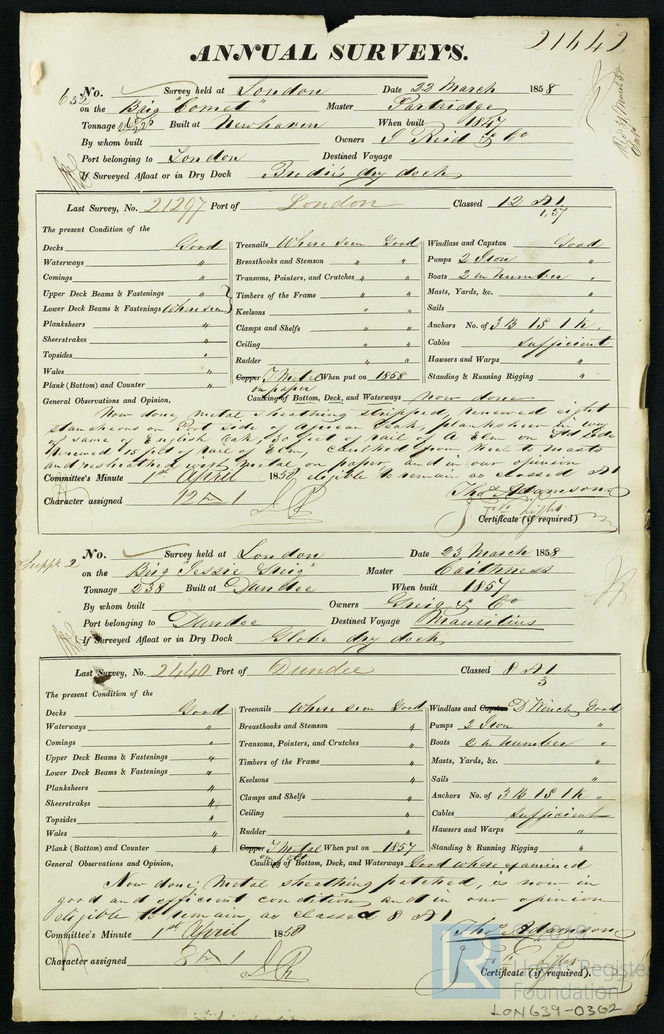 21642
ANNUAL SURVEYS.
632 No. Survey held at London Date 22 March 1858
on the Brig "Comet" Master Partridge
Tonnage Built at Newhaven When built 1847
By whom built Owners J Reid & Co
Port belonging to London Destined Voyage
If Surveyed Afloat or in Dry Dock dry dock
Last Survey, No. 21297 Port of London Classed 12 A1
1,57
The present Condition of the
Decks Good Treenails Where seen Good Windlass and Capstan Good
Waterways " Breasthooks and Stemson " " Pumps 2 Iron "
Comings " Transoms, Pointers, and Crutches " " Boats 2 in Number "
Upper Deck Beams & Fastenings Timbers of the Frame " " Masts, Yards, &c. "
Lower Deck Beams & Fastenings Where seen Keelsons " " Sails "
Planksheers " Clamps and Shelfs " " Anchors No. of 3 B 1 S 1 K "
Sheerstrakes " Ceiling " " Cables Sufficient
Topsides " Rudder " " Hawsers and Warps "
Wales " Copper Y Metal When put on 1858 Standing & Running Rigging "
Plank (Bottom) and Counter " on paper
General Observations and Opinion, Caulking of Bottom, Deck, and Waterways now done
Now done, metal sheathing stripped, renewed eight
stancheons on Port side of African Teak, planksheer in way
of same of English Oak, 30 feet of rail of A Elm on Std side
renewed 15 feet of rail of Elm, caulked from keel to
and resheathed with metal on paper, and in our opinion
Committee's Minute 1st April 1858 eligible to remain as classed A1
Character assigned 12 A 1 Thos Adamson
Certificate (if required)
Suppt 2 No. Survey held at London Date 23 March 1858
on the Brig "Jessie Greig" Master Caithness
Tonnage 238 Built at Dundee When built 1857
By whom built Owners Greig & Co
Port belonging to Dundee Destined Voyage Mauritius
If Surveyed Afloat or in Dry Dock Globe dry dock
Last Survey, No. 2440 Port of Dundee Classed 8 A1
3
The present Condition of the
Decks Good Treenails Where seen Good Windlass and Capstan D Winch Good
Waterways " Breasthooks and Stemson " Pumps 2 Iron "
Comings " Transoms, Pointers, and Crutches " Boats 2 in Number "
Upper Deck Beams & Fastenings " Timbers of the Frame " Masts, Yards, &c. "
Lower Deck Beams & Fastenings " Keelsons " Sails "
Planksheers " Clamps and Shelfs " Anchors No. of 3 B 1 S 1 K "
Sheerstrakes " Ceiling " Cables Sufficient
Topsides " Rudder " Hawsers and Warps "
Wales " Copper Y Metal When put on 1857 Standing & Running Rigging "
Plank (Bottom) and Counter "
General Observations and Opinion, Caulking of Bottom, Deck, and Waterways Good where examined
Now done, Metal sheathing patched, is now in
good and efficient condition and in our opinion
eligible to remain, as classed 8 A1
Committee's Minute 1st April 1858 Thos Adamson
Character assigned 8 A 1
Certificate (if required).
Lloyd's Register
Foundation
LON639-0302